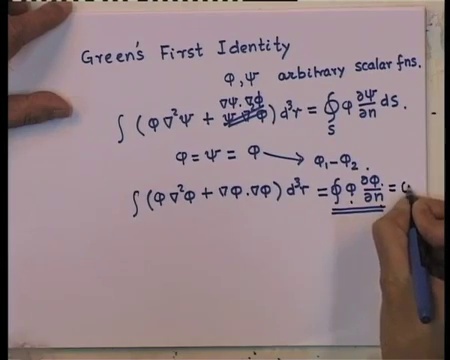 Green's First Identity
φ, ψ arbitrary scalar fns.
∇ψ. ∇φ
∫ (φ ∇²ψ + ) d³r = ∮_S φ ∂ψ/∂n dS.
φ = ψ = φ → φ₁-φ₂.
∫ (φ ∇²φ + ∇φ.∇φ) d³r = ∮ φ ∂φ/∂n =